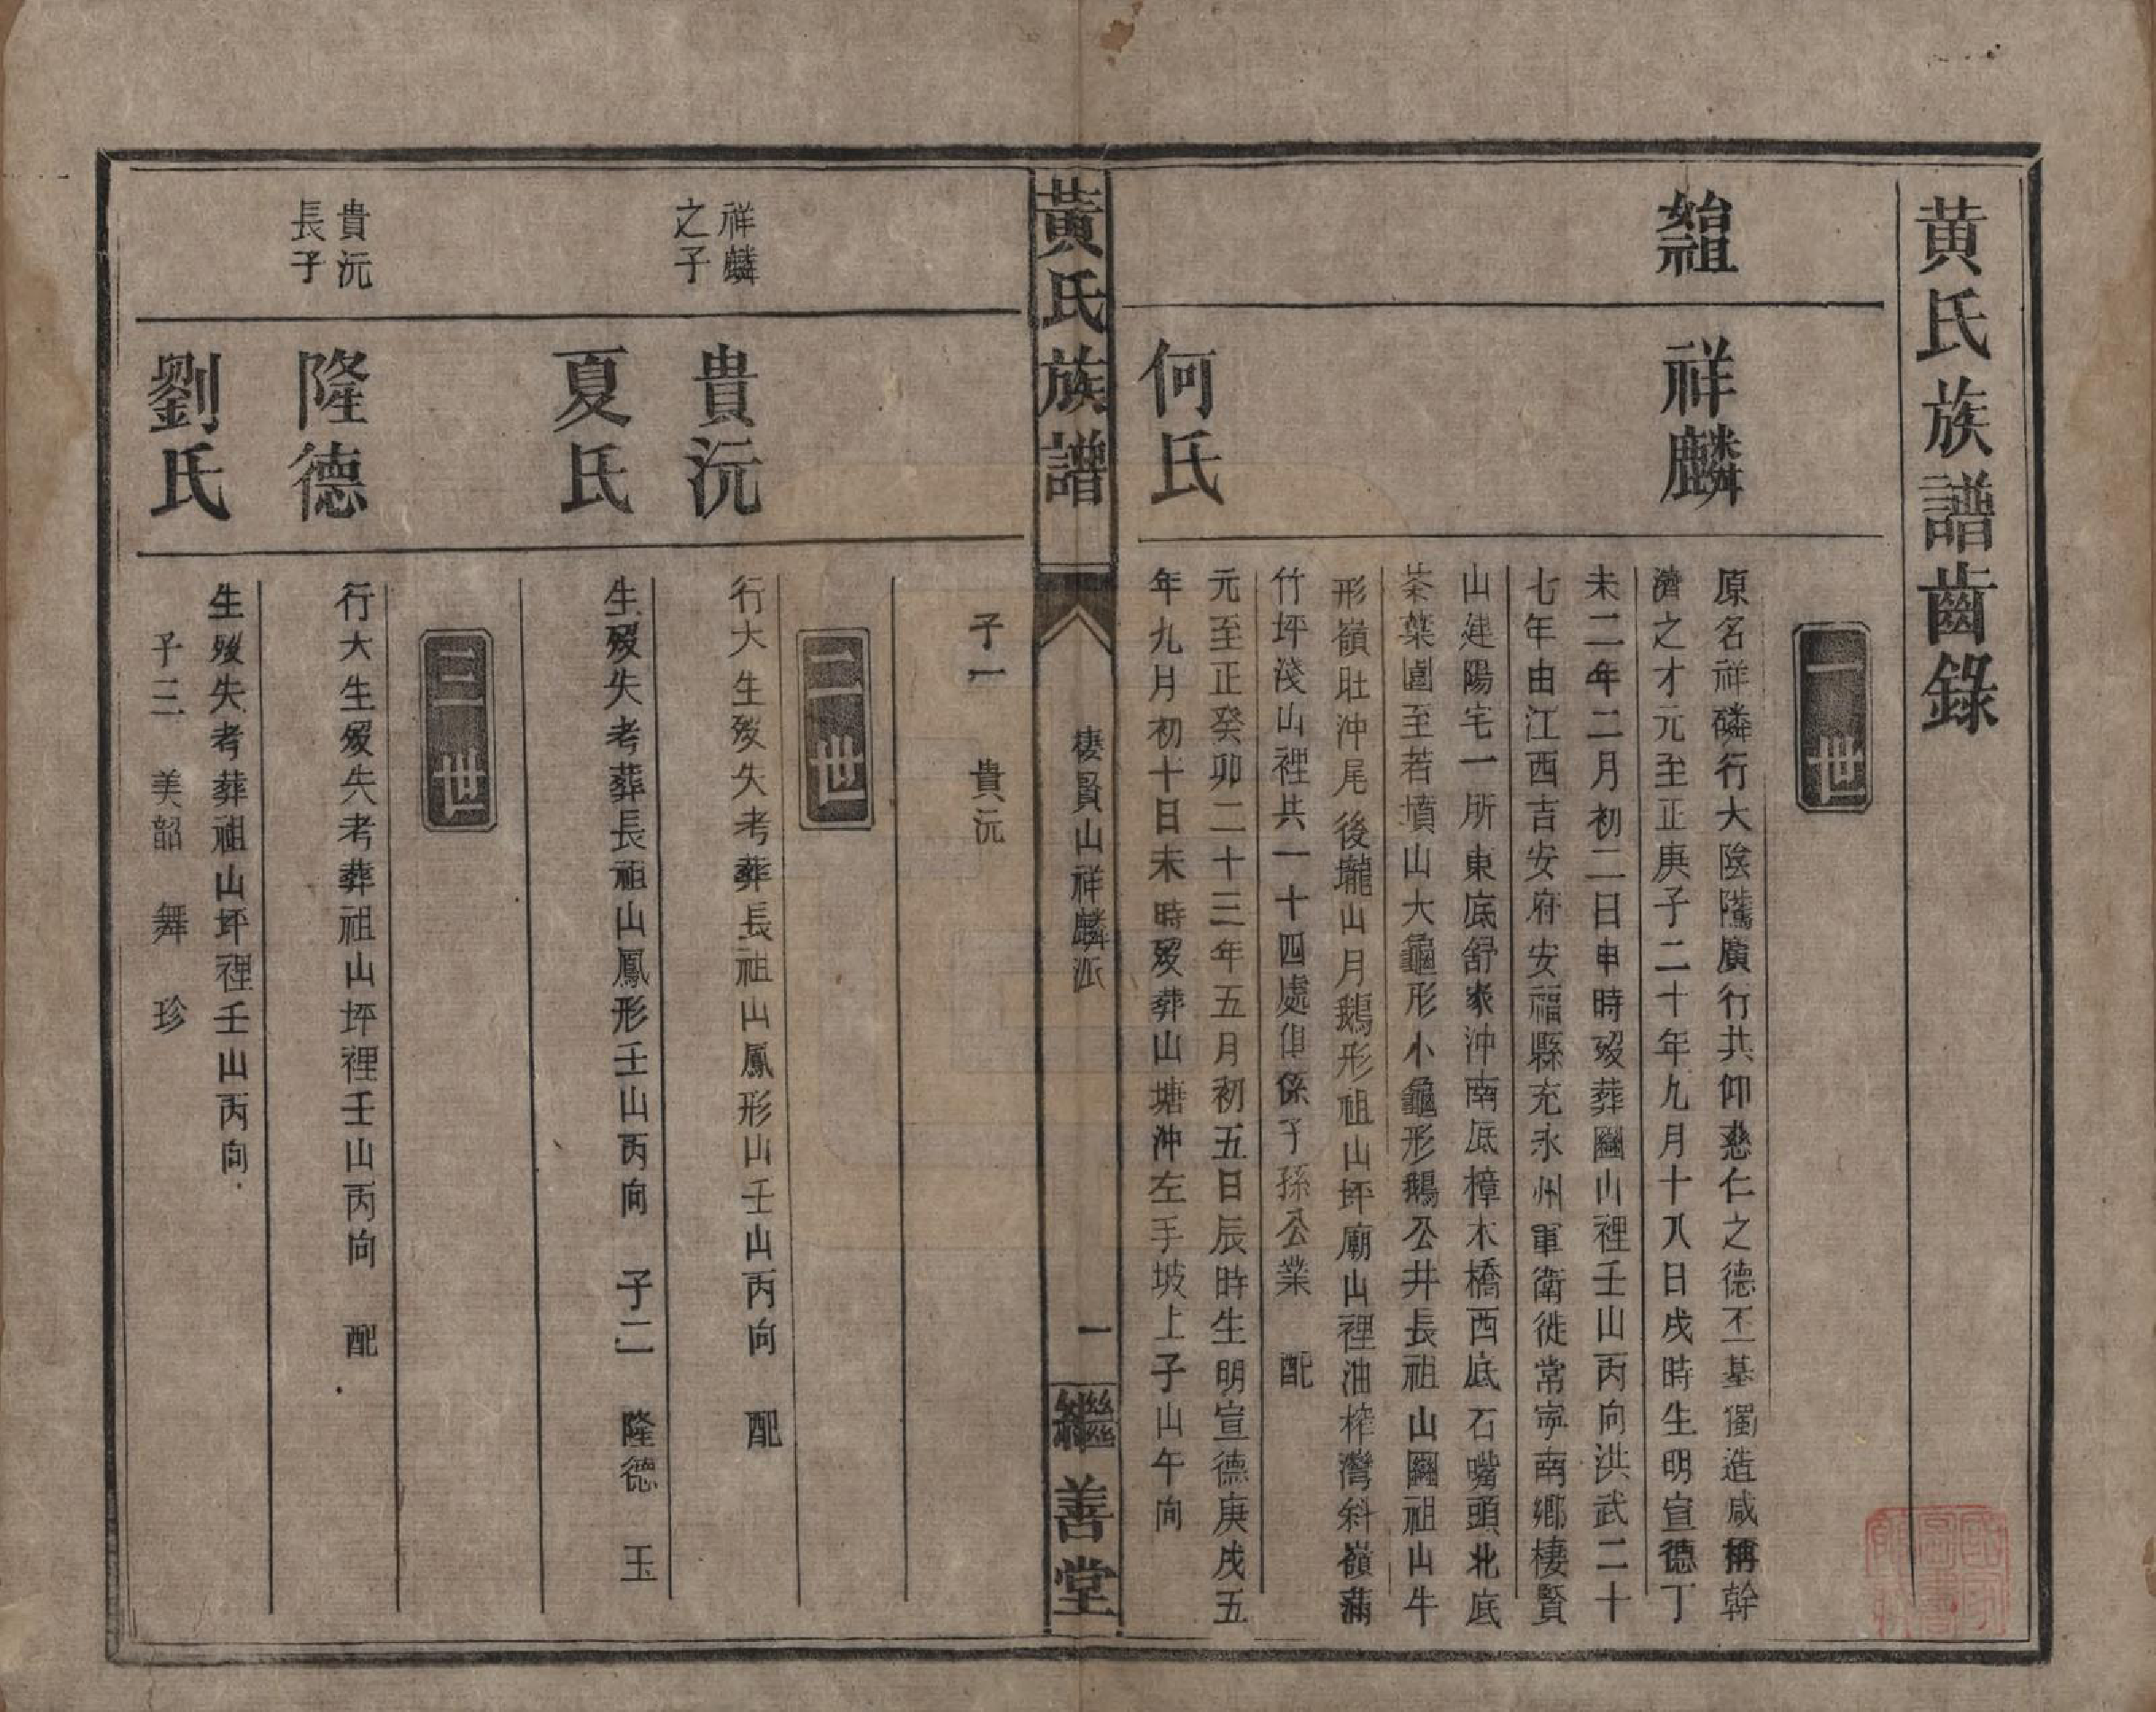 黄氏族譜齒錄
一世
始祖
祥麟
原名祥磷行大陰隲廣行共仰慈仁之德丕基獨造咸稱幹
濟之才元至正庚子二十年九月十八日戌時生明宣德丁
未二年二月初二日申時歿葬圞山裡壬山丙向洪武二十
七年由江西吉安府安福縣充永州軍衛徙常寧南鄉棲賢
山建陽宅一所東底舒家沖南底樟木橋西底石嘴頭北底
茶葉園至若墳山大龜形小龜形鵝公井長祖山圞祖山牛
形嶺肚沖尾後壠山月鵝形祖山坪廟山裡油榨灣斜嶺蒲
竹坪淺山裡共一十四處俱係子孫公業　配
何氏
元至正癸卯二十三年五月初五日辰時生明宣德庚戌五
年九月初十日未時歿葬山塘沖左手坡上子山午向
黃氏族譜
棲賢山祥麟派
一
繼善堂
子一　貴沅
二世
祥麟
之子
貴沅
行大生歿失考葬長祖山鳳形山壬山丙向　配
夏氏
生歿失考葬長祖山鳳形壬山丙向　子二　隆德　玉
三世
貴沅
長子
隆德
行大生歿失考葬祖山坪裡壬山丙向　配
劉氏
生歿失考葬祖山坪裡壬山丙向
子三　美韶　舞　珍